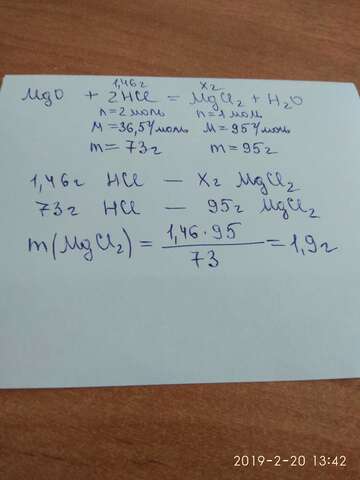 1,46г хг
MgO + 2HCl = MgCl₂ + H₂O
n = 2 моль n = 1 моль
M = 36,5 г/моль M = 95 г/моль
m = 73г m = 95г
1,46г HCl — хг MgCl₂
73г HCl — 95г MgCl₂
m(MgCl₂) = 1,46·95 / 73 = 1,9г
2019-2-20 13:42